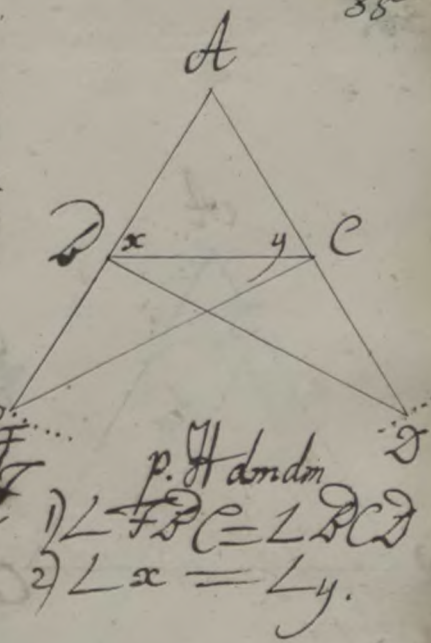 38
A
B x y C
F D
p. H dmdm
1) ∠ FBC = ∠ BCD
2) ∠ x = ∠ y.